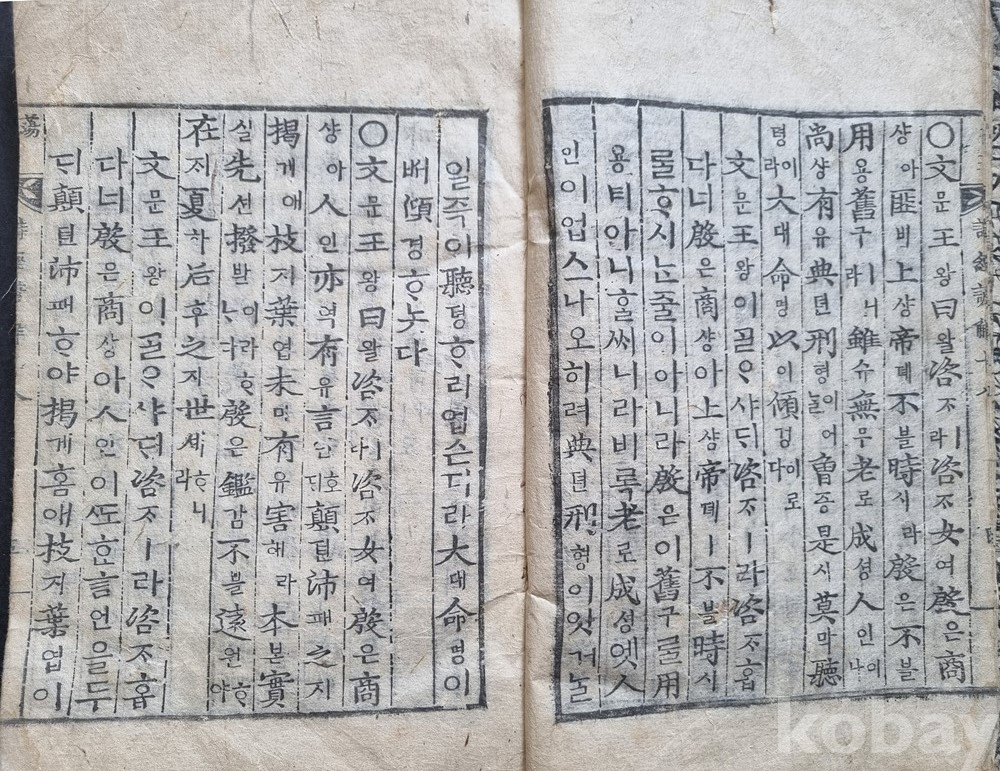 〇文문王왕曰왈咨ᄌᆞㅣ라咨ᄌᆞ女여殷은商
샹아匪비上샹帝뎨不블時시라殷은不블
用용舊구ㅣ니라雖슈無무老로成셩人인이나
尙샹有유典뎐刑형이어ᄂᆞᆯ曾증是시莫막聽
텽이라大대命명以이傾경이로다
文문王왕이ᄀᆞᆯᄋᆞ샤ᄃᆡ咨ᄌᆞㅣ라咨ᄌᆞ홉
다너殷은商샹아上샹帝뎨ㅣ不블時시
ᄅᆞᆯᄒᆞ시ᄂᆞᆫ줄이아니라殷은이舊구ᄅᆞᆯ用
용티아니ᄒᆞᆯᄊᆡ니라비록老로成셩엣人
인이업스나오히려典뎐刑형이잇거ᄂᆞᆯ
일즉이聽텽ᄒᆞ리업슨디라大대命명이
배傾경ᄒᆞ놋다
〇文문王왕曰왈咨ᄌᆞㅣ라咨ᄌᆞ女여殷은商
샹아人인亦역有유言언호ᄃᆡ顚뎐沛패之지
揭게애枝지葉엽未미有유害해라本본實
실先션撥발이라ᄒᆞᄂᆞ니殷은鑑감不블遠원ᄒᆞ야
在ᄌᆡ夏하后후之지世셰ᄒᆞ니라
文문王왕이ᄀᆞᆯᄋᆞ샤ᄃᆡ咨ᄌᆞㅣ라咨ᄌᆞ홉
다너殷은商상아人인이ᄯᅩᄒᆞᆫ言언을두
ᄃᆡ顚뎐沛패ᄒᆞ야揭게홈애枝지葉엽이
蕩
kobay